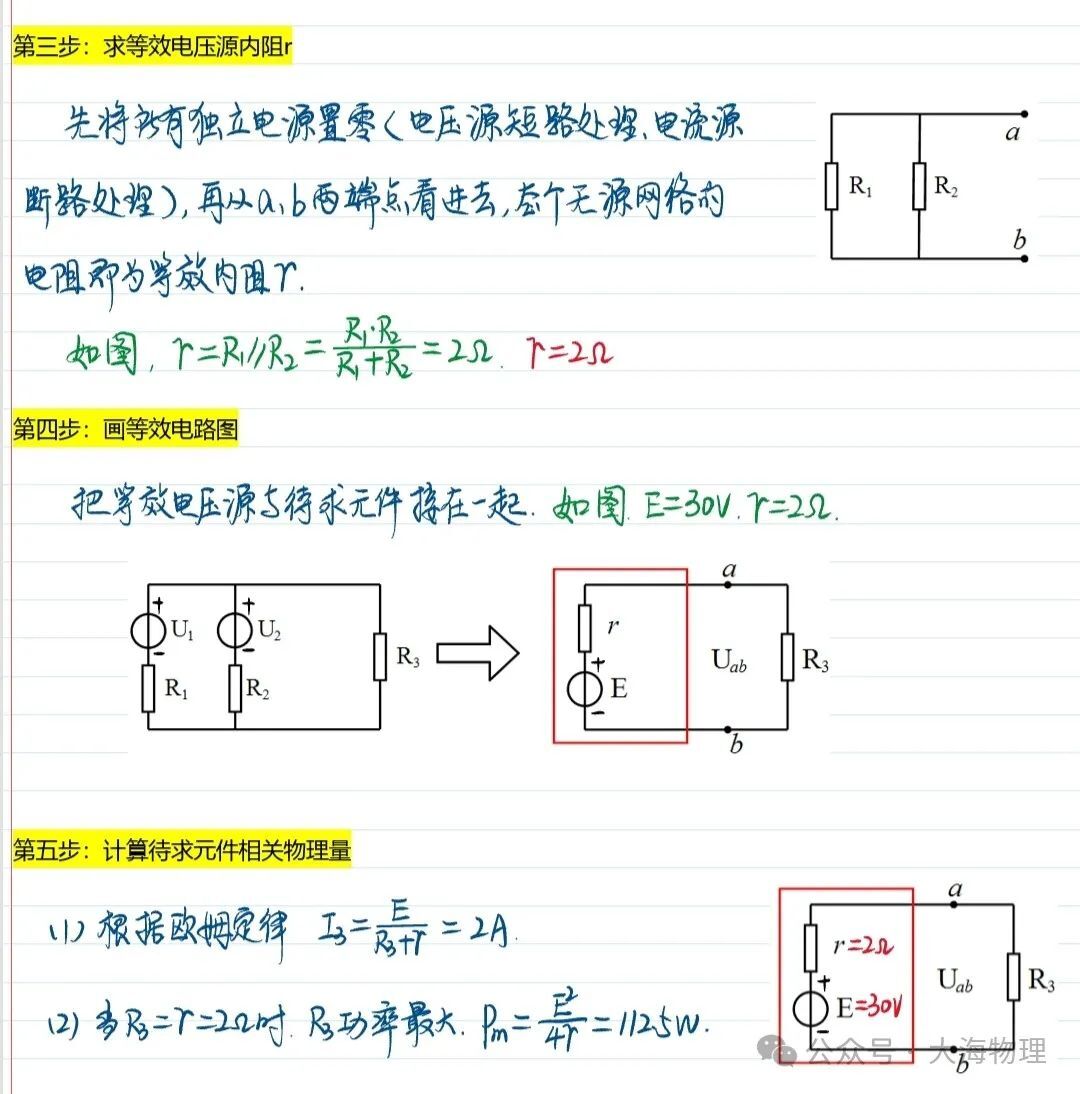 第三步：求等效电压源内阻r
先将所有独立电源置零(电压源短路处理、电流源
断路处理),再从a、b两端点看进去,整个无源网络的
电阻即为等效内阻r.
如图, r=R₁//R₂=R₁·R₂/R₁+R₂=2Ω. r=2Ω
a
R₁
R₂
b
第四步：画等效电路图
把等效电压源与待求元件接在一起. 如图. E=30V. r=2Ω.
+
U₁
-
R₁
+
U₂
-
R₂
R₃
a
r
+
E
-
U_ab
R₃
b
第五步：计算待求元件相关物理量
(1) 根据欧姆定律 I₃=E/R₃+r=2A.
(2) 当R₃=r=2Ω时. R₃功率最大. Pm=E²/4r=112.5W.
a
r=2Ω
+
E=30V
-
U_ab
R₃
b
公众号·大海物理